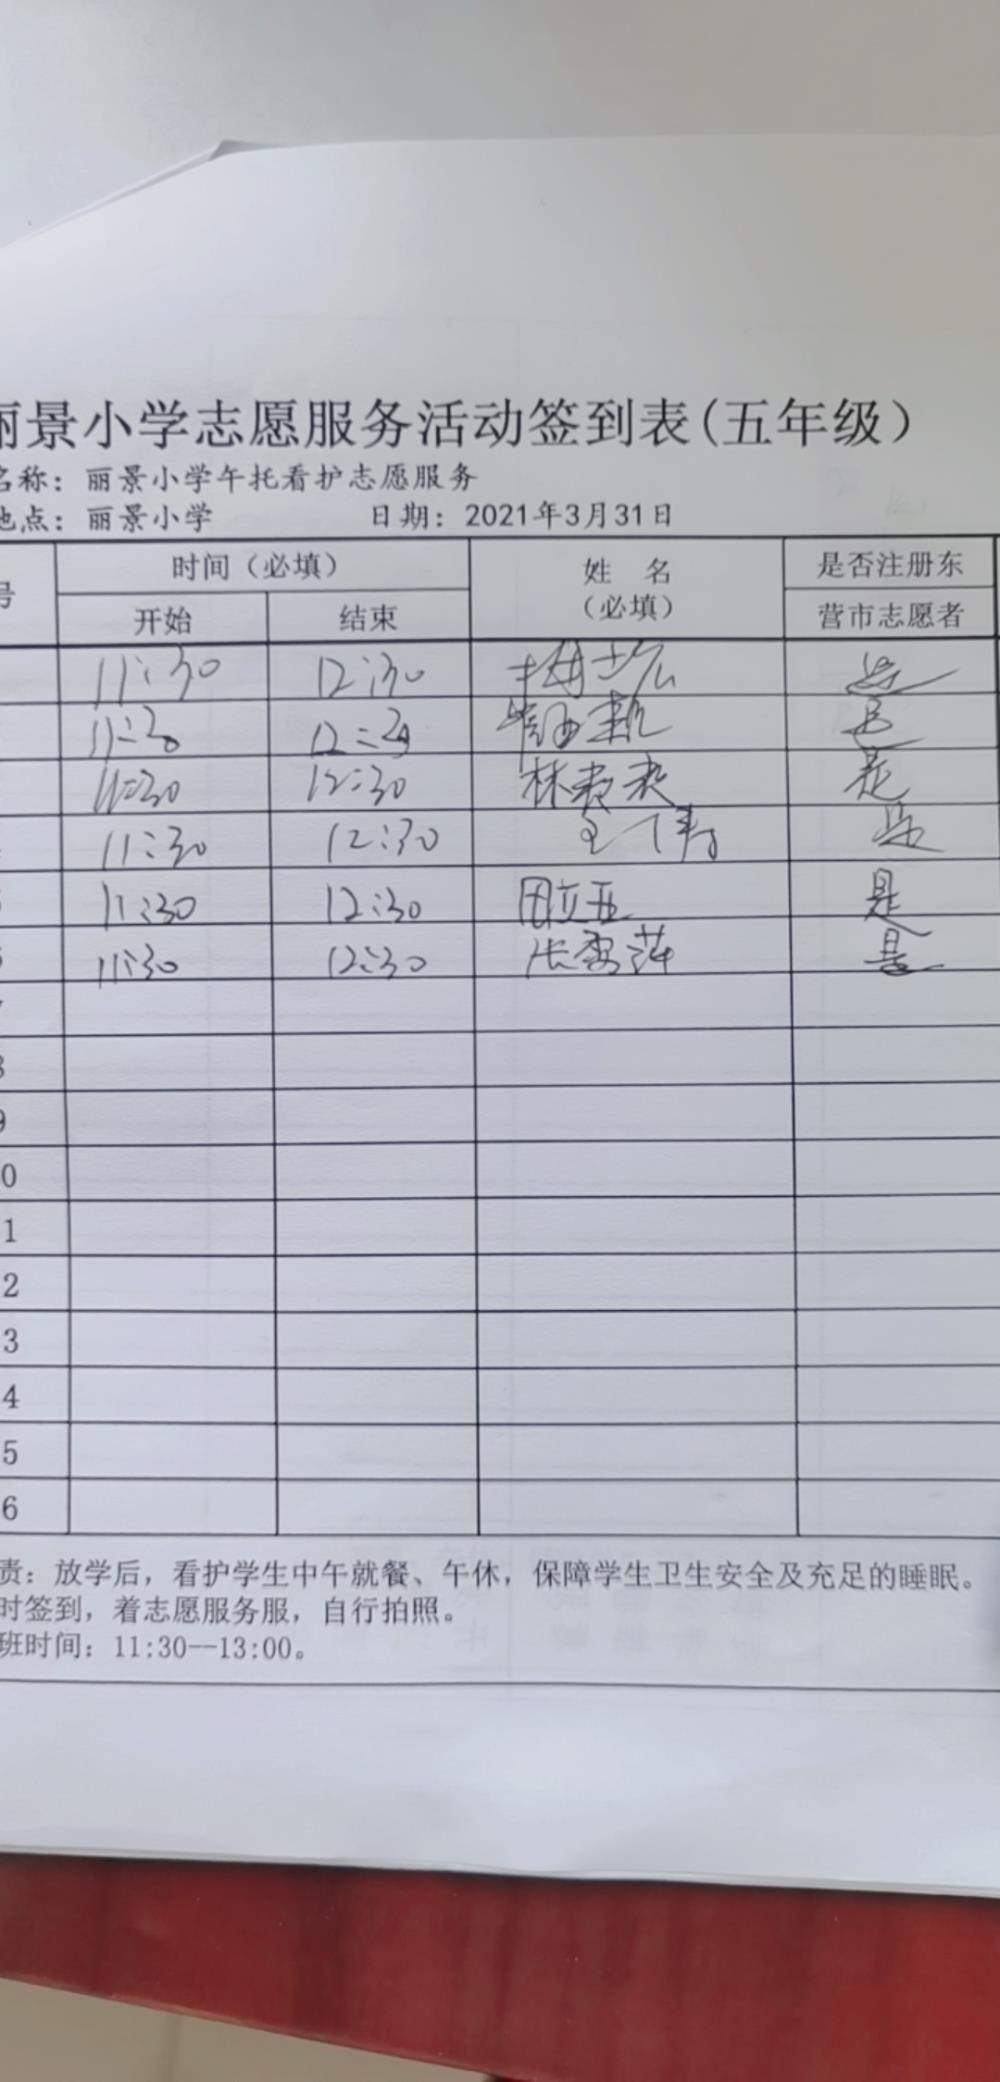 丽景小学志愿服务活动签到表(五年级)
名称：丽景小学午托看护志愿服务
地点：丽景小学 日期：2021年3月31日
号 时间（必填） 姓 名 是否注册东
开始 结束 （必填） 营市志愿者
11:30 12:30 是
11:30 12:30 是
11:30 12:30 林 是
11:30 12:30 是
11:30 12:30 田立亚 是
11:30 12:30 张秀萍 是
7
8
9
0
1
2
3
4
5
6
责：放学后，看护学生中午就餐、午休，保障学生卫生安全及充足的睡眠。
时签到，着志愿服务服，自行拍照。
班时间：11:30--13:00。